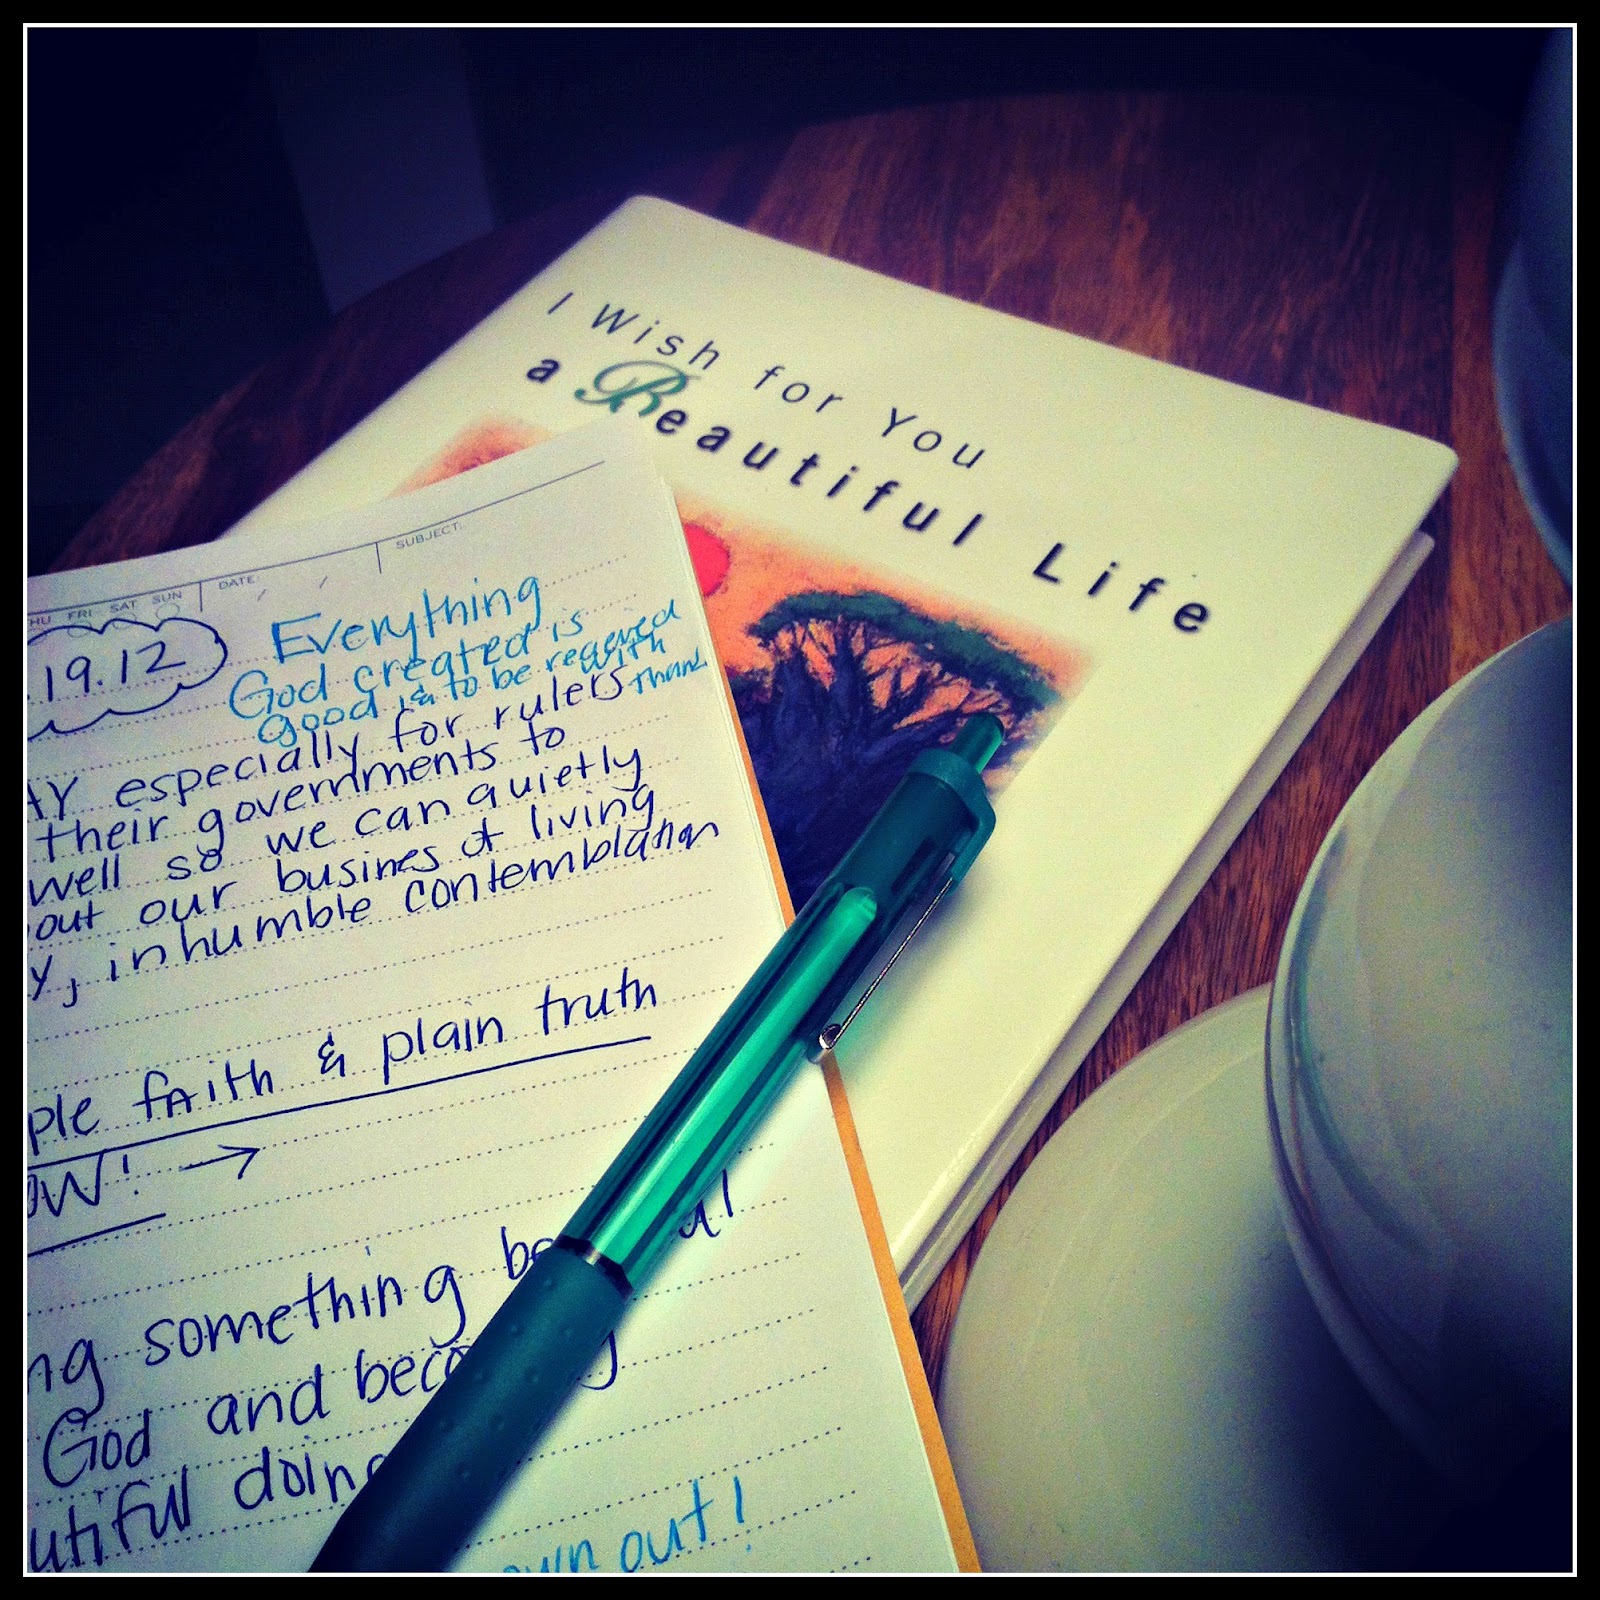 I Wish for You
a Beautiful Life
HU FRI SAT SUN
DATE
SUBJECT:
.19.12
Everything
God created is
good & to be
with
thank
AY especially for rulers
their governments to
well so we can quietly
out our busines of living
y, in humble contemblation
ple faith & plain truth
OW! →
ng something be ul
God and beco g
utiful doing
own out!